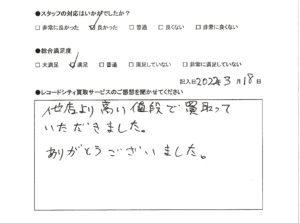 ●スタッフの対応はいかがでしたか？
□非常に良かった ☑良かった □普通 □良くない □非常に良くない
●総合満足度
□大満足 ☑満足 □普通 □満足していない □非常に満足していない
記入日 2022年 3月 18日
●レコードシティ買取サービスのご感想を聞かせてください
他店より高い値段で買取って
いただきました。
ありがとうございました。